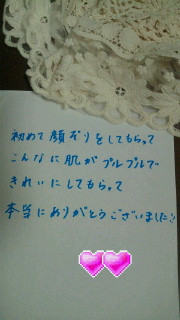 初めて顔ぞりをしてもらって
こんなに肌がプルプルで
きれいにしてもらって
本当にありがとうございました!